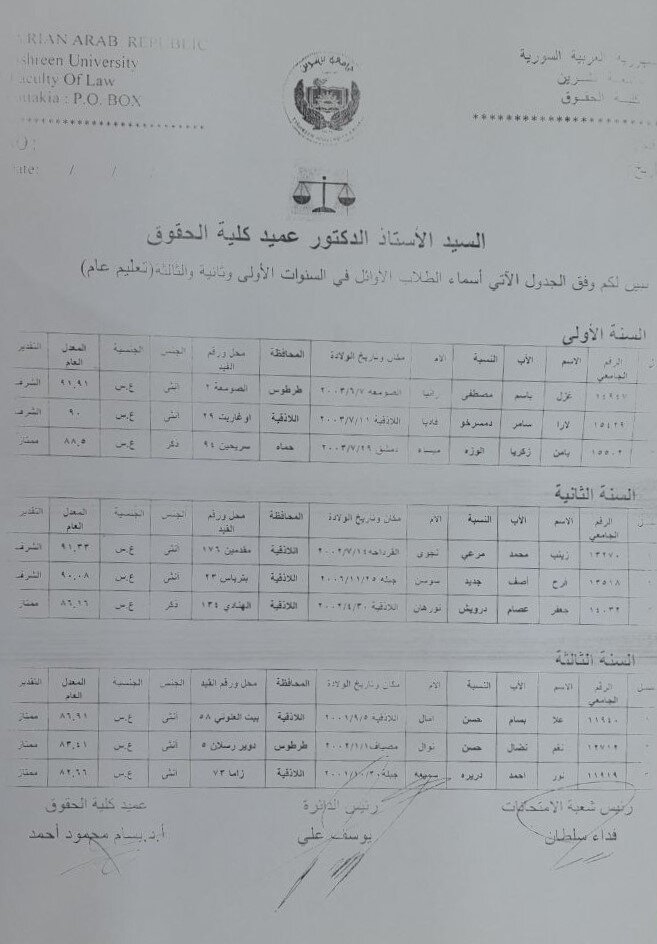 ARIAN ARAB REPUBLIC
shreen University
Faculty Of Law
attakia : P.O. BOX
********************
العربية السورية
تشرين
كلية الحقوق
********************
ate: / /
السيد الأستاذ الدكتور عميد كلية الحقوق
لكم وفق الجدول الآتي أسماء الطلاب الاوائل في السنوات الأولى وثانية والثالثة (تعليم عام)
السنة الأولى
الرقم الجامعي الاسم الأب النسبة الام مكان وتاريخ الولادة المحافظة محل ورقم القيد الجنس الجنسية المعدل العام التقدير
١٤٩٤٧ غزل باسم مصطفى رانيا الصومعه ٢٠٠٣/٦/٧ طرطوس الصومعة ٢ انثى ع.س ٩١,٩١ الشرف
١٥٤٢٩ لارا سامر دمسرخو فاديا اللاذقية ٢٠٠٣/٧/١١ اللاذقية اوغاريت ٢٩ انثى ع.س ٩٠ الشرف
١٥٥٠٢ يامن زكريا الوزه ميساء دمشق ٢٠٠٣/٧/٢٩ حماه سريحين ٩٤ ذكر ع.س ٨٨,٥ ممتاز
السنة الثانية
الرقم الجامعي الاسم الأب النسبة الام مكان وتاريخ الولادة المحافظة محل ورقم القيد الجنس الجنسية المعدل العام التقدير
١٣٢٧٠ زينب محمد مرعي نجوى القرداحه ٢٠٠٢/٧/١٤ اللاذقية مقدمين ١٧٦ انثى ع.س ٩١,٣٣ الشرف
١٣٥١٨ فرح آصف جديد سوسن جبله اللاذقية بترياس ٢٣ انثى ع.س ٩٠,٠٨ الشرف
١٤٠٣٢ جعفر عصام درويش نورهان اللاذقية ٢٠٠٢/٤/٣٠ اللاذقية الهنادي ١٣٤ ذكر ع.س ٨٦,١٦ ممتاز
السنة الثالثة
الرقم الجامعي الاسم الأب النسبة الام مكان وتاريخ الولادة المحافظة محل ورقم القيد الجنس الجنسية المعدل العام التقدير
١١٩٤٠ علا بسام حسن امال اللاذقية ٢٠٠١/٩/٥ اللاذقية بيت العلوني ٥٨ انثى ع.س ٨٦,٩١ ممتاز
١٢٧١٢ نغم نضال حسن نوال مصياف ٢٠٠٢/١/١ طرطوس دوير رسلان ٥ انثى ع.س ٨٣,٤١ ممتاز
١١٩١٩ نور احمد دريره سميعه جبلة ٢٠٠١/١٠/٣٠ اللاذقية زاما ٧٣ انثى ع.س ٨٢,٦٦ ممتاز
رئيس شعبة الامتحانات رئيس الدائرة عميد كلية الحقوق
فداء سلطان يوسف علي أ.د.بسام محمود أحمد